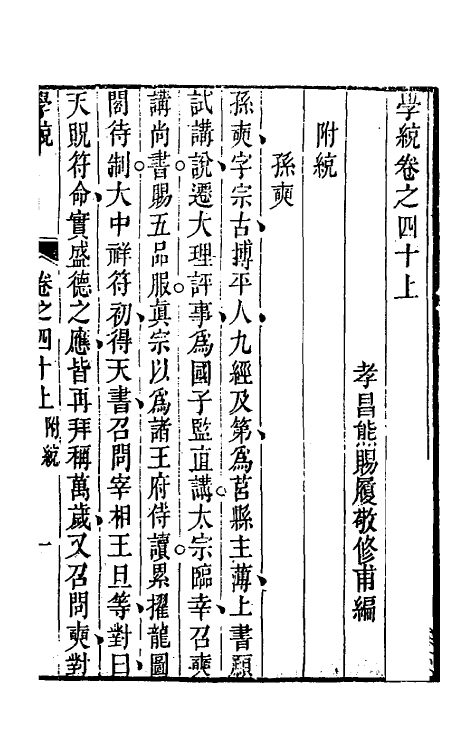 學統卷之四十上
孝昌熊賜履敬修甫編
附統
孫奭
孫奭字宗古博平人九經及第為莒縣主薄上書願
試講說遷大理評事為國子監直講太宗臨幸召奭
講尚書賜五品服眞宗以為諸王府侍讀累擢龍圖
閣待制大中祥符初得天書召問宰相王旦等對曰
天貺符命實盛德之應皆再拜稱萬歲又召問奭對
學統
卷之四十上
附統
一